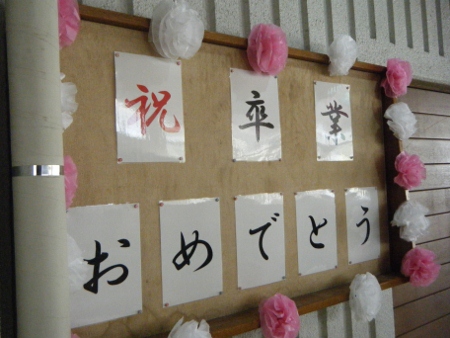 祝 卒業
おめでとう